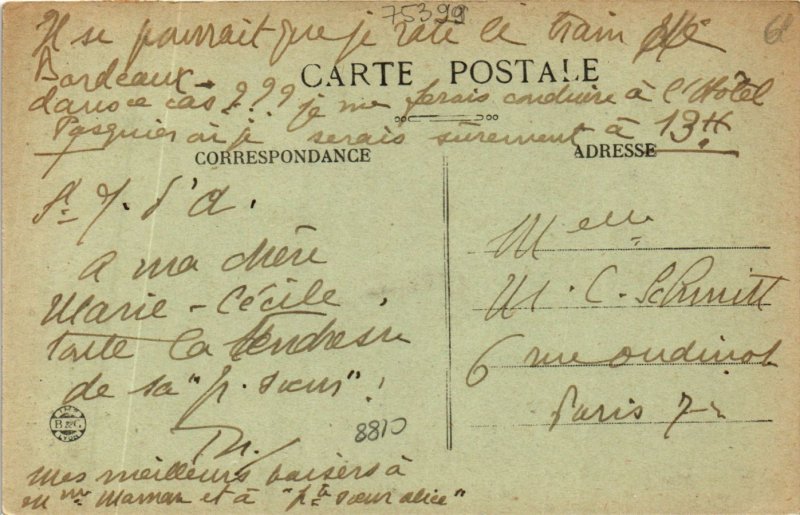 75399
Il se pourrait que je rate le train
Bordeaux
CARTE POSTALE
dans ce cas ? ? ? je me ferais conduire à l'Hôtel
Pasquier où je serais sûrement à 13H.
CORRESPONDANCE
ADRESSE
St J. d'A.
A ma chère
Marie-Cécile,
toute la tendresse
de sa "p. sœur" !
M.
8810
mes meilleurs baisers à
Mme Maman et à "pte sœur alice"
Melle
M. C. Schmitt
6 rue oudinot
Paris 7e
B
LYON